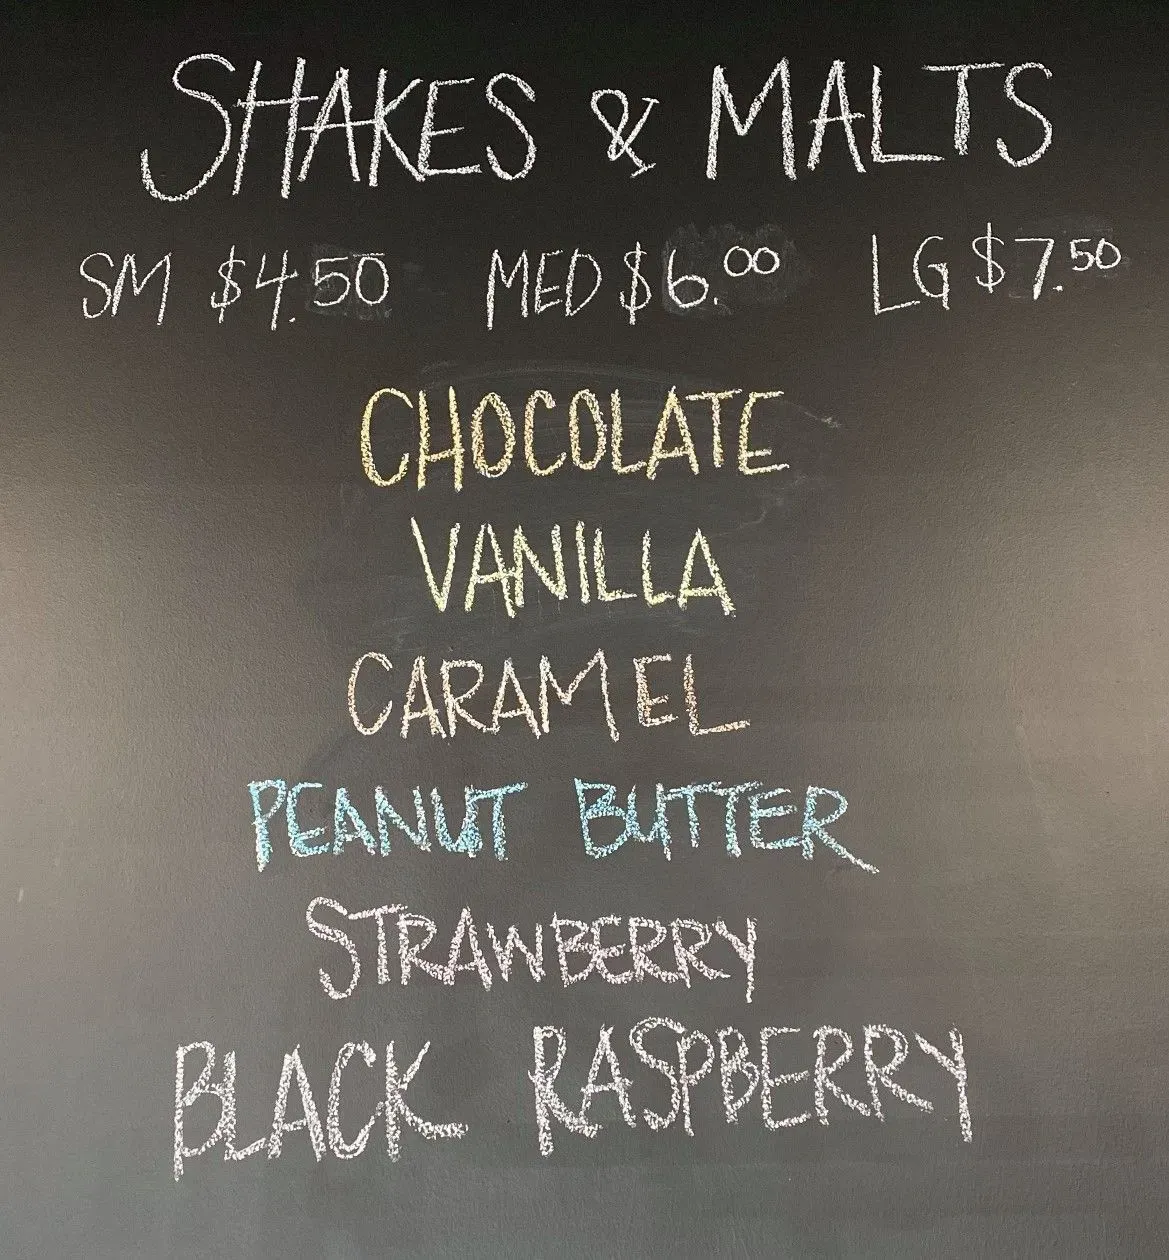 SHAKES & MALTS
SM $4.50 MED $6.00 LG $7.50
CHOCOLATE
VANILLA
CARAMEL
PEANUT BUTTER
STRAWBERRY
BLACK RASPBERRY